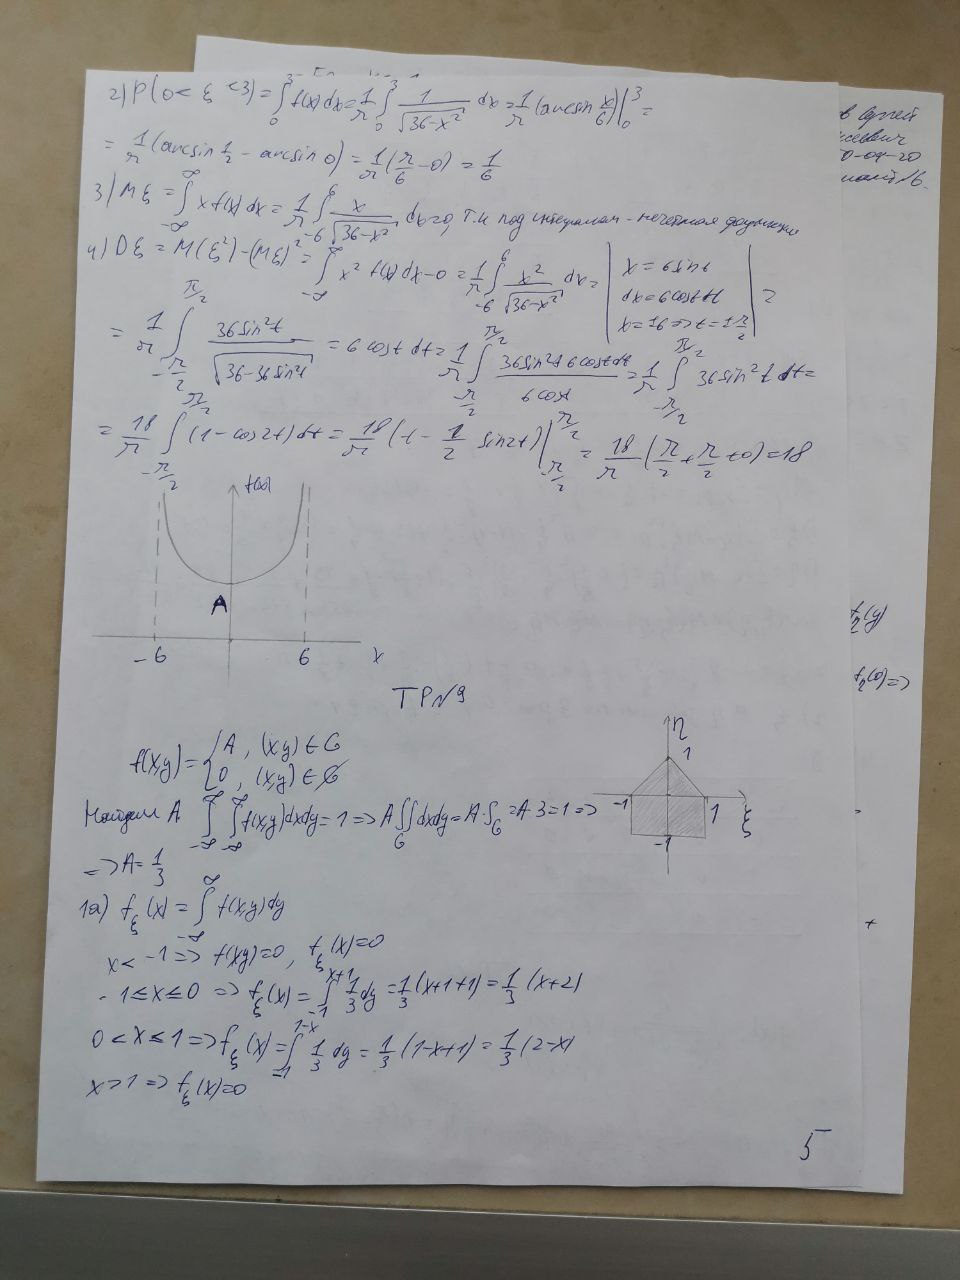 2) P(0 < ξ < 3) = ∫₀³ f(x)dx = 1/π ∫₀³ 1/√(36-x²) dx = 1/π (arcsin x/6)|₀³ =
= 1/π (arcsin 1/2 - arcsin 0) = 1/π (π/6 - 0) = 1/6
3) Mξ = ∫_{-∞}^{∞} x f(x) dx = 1/π ∫_{-6}^{6} x/√(36-x²) dx = 0, т.к под интегралом - нечетная функция
4) Dξ = M(ξ²) - (Mξ)² = ∫_{-∞}^{∞} x² f(x) dx - 0 = 1/π ∫_{-6}^{6} x²/√(36-x²) dx = | x = 6sint
dx = 6cost dt
x = 16 => t = 1 π/2 | =
= 1/π ∫_{-π/2}^{π/2} 36sin²t/√(36-36sin²t) = 6 cost dt = 1/π ∫_{-π/2}^{π/2} 36sin²t 6cost dt/6cost = 1/π ∫_{-π/2}^{π/2} 36sin²t dt =
= 18/π ∫_{-π/2}^{π/2} (1-cos2t) dt = 18/π (t - 1/2 sin2t)|_{-π/2}^{π/2} = 18/π (π/2 + π/2 + 0) = 18
f(x)
A
-6 6 x
ТР№9
f(x,y) = { A, (x,y) ∈ G
0, (x,y) ∉ G
η
1
-1 1 ξ
-1
Найдем A ∫_{-∞}^{∞} ∫_{-∞}^{∞} f(x,y)dxdy = 1 => A ∬_G dxdy = A·S_G = A·3 = 1 =>
=> A = 1/3
1а) f_ξ(x) = ∫_{-∞}^{∞} f(x,y)dy
x < -1 => f(xy) = 0, f_ξ(x) = 0
-1 ≤ x ≤ 0 => f_ξ(x) = ∫_{-1}^{x+1} 1/3 dy = 1/3 (x+1+1) = 1/3 (x+2)
0 < x ≤ 1 => f_ξ(x) = ∫_{-1}^{1-x} 1/3 dy = 1/3 (1-x+1) = 1/3 (2-x)
x > 1 => f_ξ(x) = 0
5
в Сергей
f₂(y)
f₂(0) =>
=
+